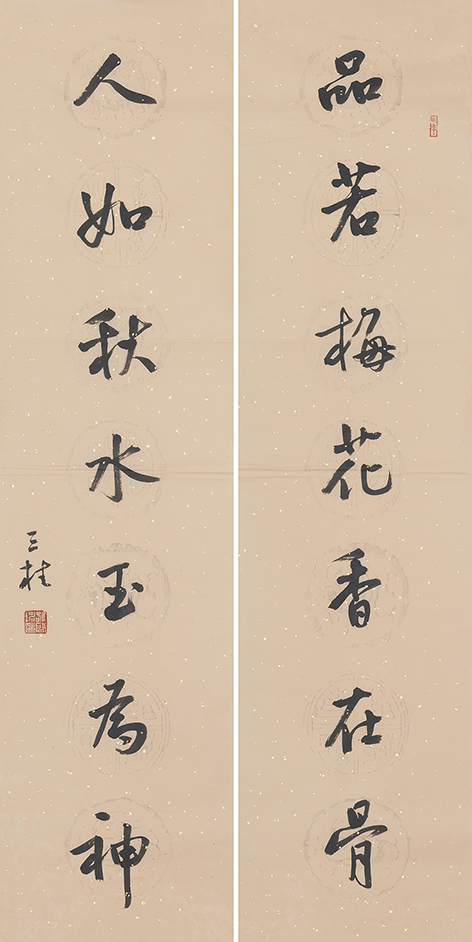 品若梅花香在骨
人如秋水玉為神
三桂